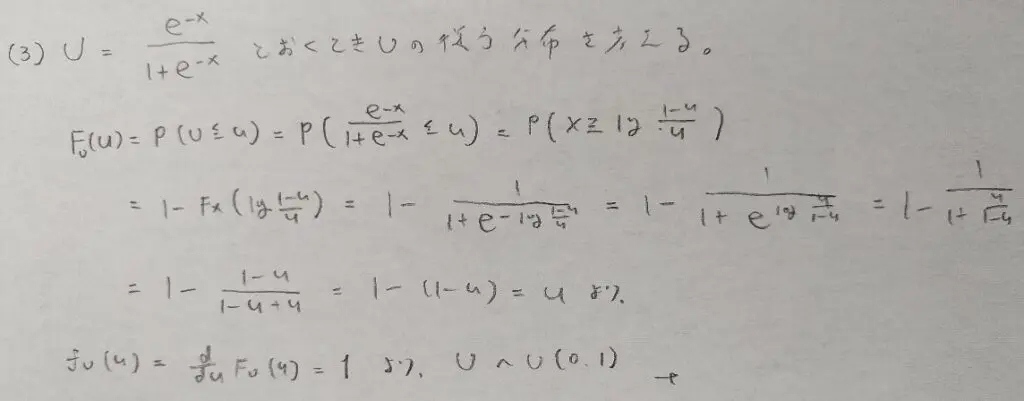 (3) U = \frac{e^{-x}}{1+e^{-x}} とおくときUの従う分布を考える。
F_U(u) = P(U ≦ u) = P(\frac{e^{-x}}{1+e^{-x}} ≦ u) = P(X ≧ log \frac{1-u}{u})
= 1 - F_X(log \frac{1-u}{u}) = 1 - \frac{1}{1+e^{-log \frac{1-u}{u}}} = 1 - \frac{1}{1+e^{log \frac{u}{1-u}}} = 1 - \frac{1}{1+\frac{u}{1-u}}
= 1 - \frac{1-u}{1-u+u} = 1 - (1-u) = u より.
f_U(u) = \frac{d}{du} F_U(u) = 1 より. U ~ U(0.1)